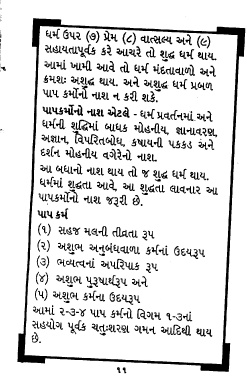 ધર્મ ઉપર (૭) પ્રેમ (૮) વાત્સલ્ય અને (૯)
સહાયતાપૂર્વક કરે આચરે તો શુદ્ધ ધર્મ થાય.
આમાં ખામી આવે તો ધર્મ મંદતાવાળો અને
ક્રમશઃ અશુદ્ધ થાય. અને અશુદ્ધ ધર્મ પ્રબળ
પાપ કર્મોનો નાશ ન કરી શકે.
પાપકર્મોનો નાશ એટલે - ધર્મ પ્રવર્તનમાં અને
ધર્મની શુદ્ધિમાં બાધક મોહનીય, જ્ઞાનાવરણ,
અજ્ઞાન, વિપરિતબોધ, કષાયની પકકડ અને
દર્શન મોહનીય વગેરેનો નાશ.
આ બધાનો નાશ થાય તો જ શુદ્ધ ધર્મ થાય.
ધર્મમાં શુદ્ધતા આવે, આ શુદ્ધતા લાવનાર આ
પાપકર્મોનો નાશ જરૂરી છે.
પાપ કર્મ
(૧) સહજ મલની તીવ્રતા રૂપ
(૨) અશુભ અનુબંધવાળા કર્મનાં ઉદયરૂપ
(૩) ભવ્યત્વનાં અપરિપાક રૂપ
(૪) અશુભ પુરૂષાર્થરૂપ અને
(૫) અશુભ કર્મના ઉદયરૂપ
આમાં ૨-૩-૪ પાપ કર્મનો વિગમ ૧-૩નાં
સહયોગ પૂર્વક ચતુઃશરણ ગમન આદિથી થાય
છે.
૧૧